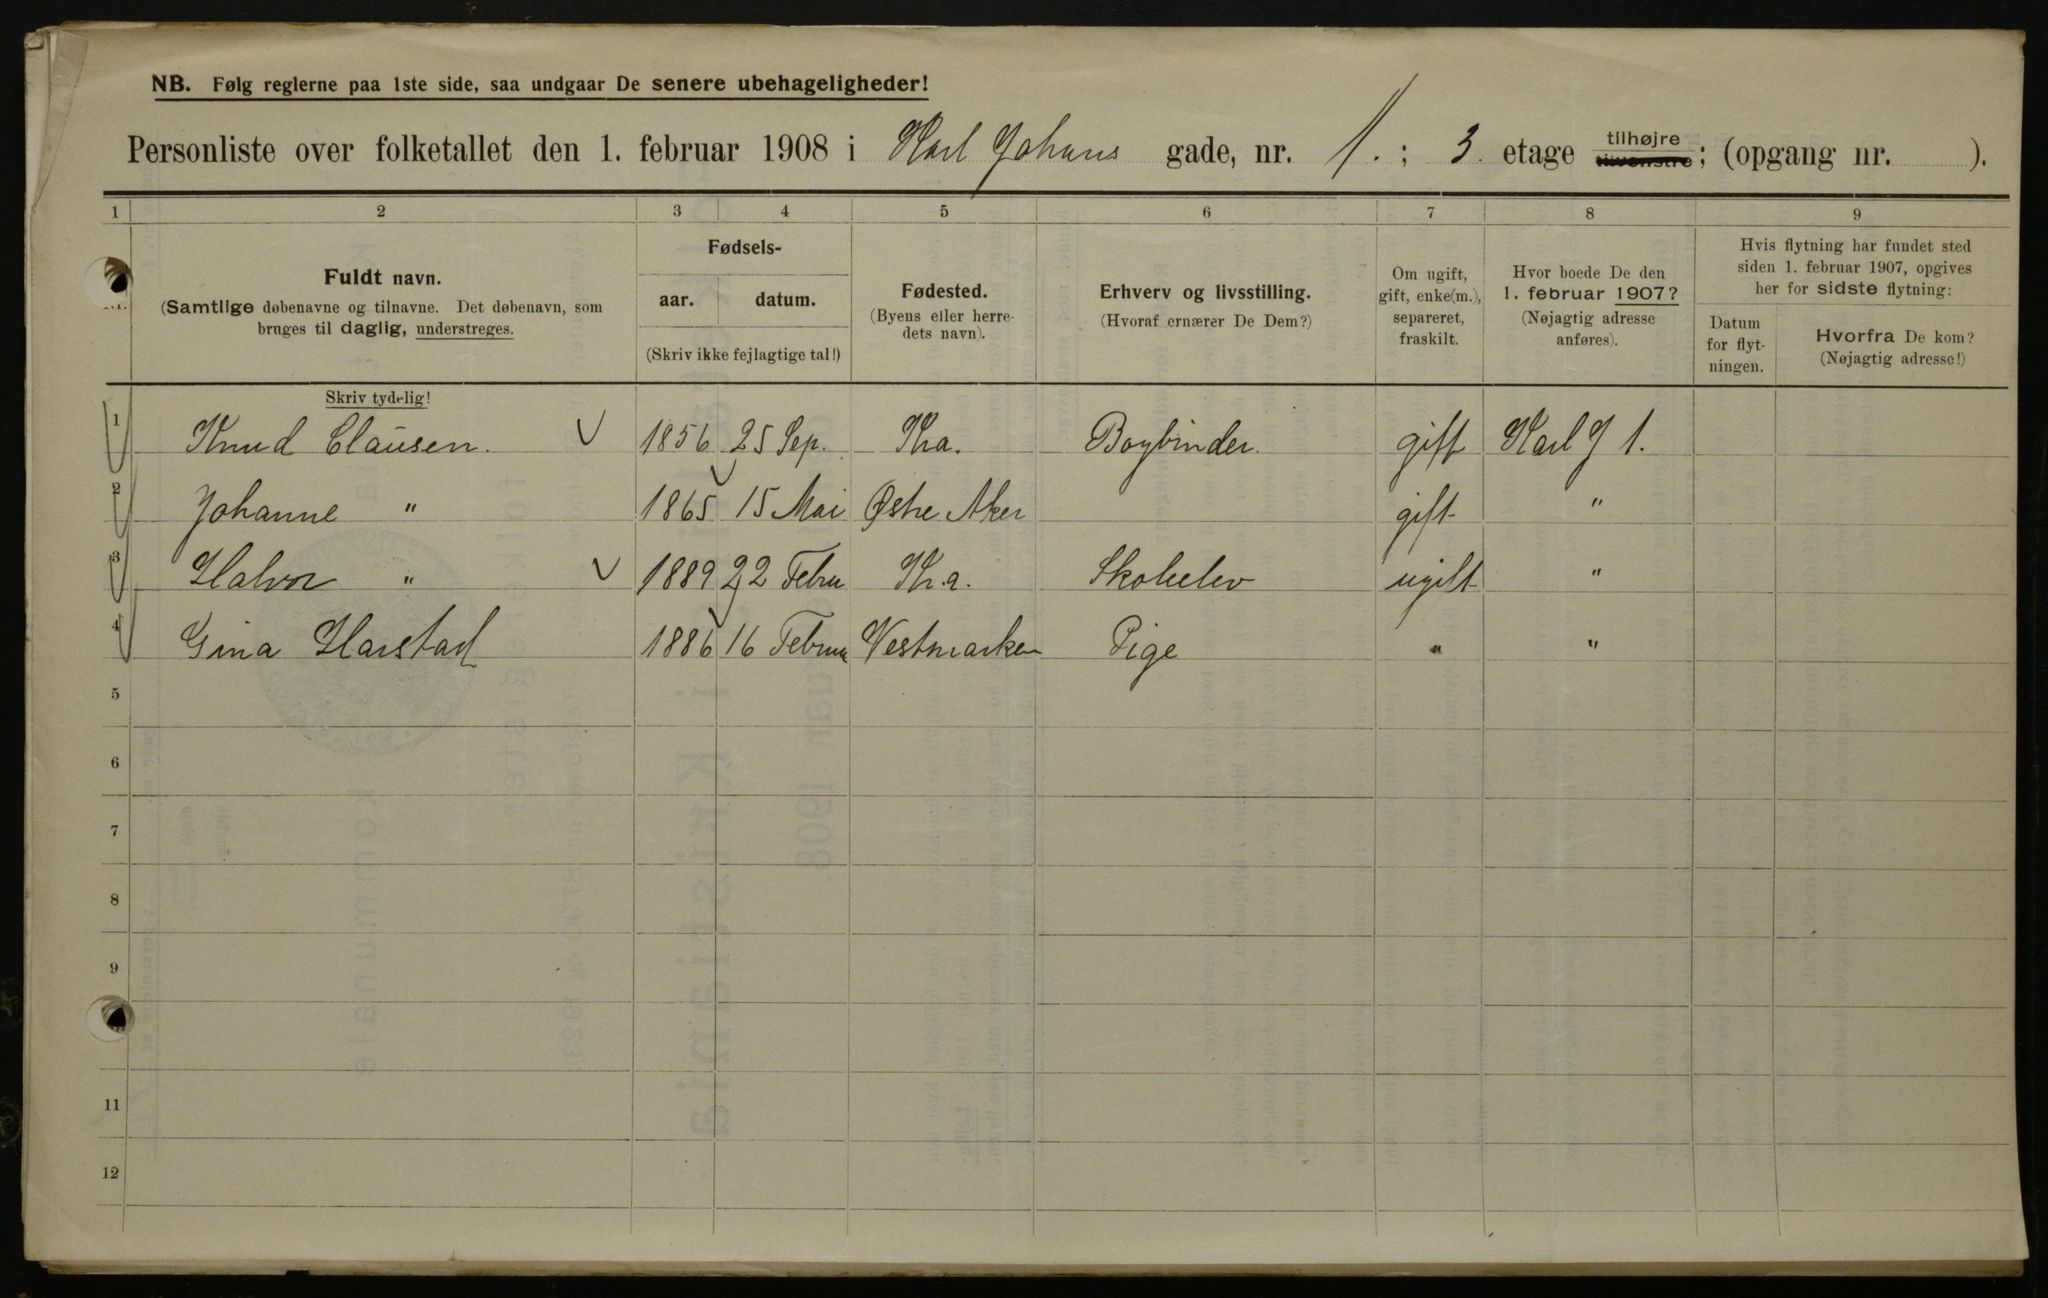 NB. Følg reglerne paa 1ste side, saa undgaar De senere ubehageligheder!
Personliste over folketallet den 1. februar 1908 i Karl Johans gade, nr. 1. ; 3. etage tilhøjre tilvenstre; (opgang nr. ).
1 2 3 4 5 6 7 8 9
Fuldt navn.
(Samtlige døbenavne og tilnavne. Det døbenavn, som
bruges til daglig, understreges.
Fødsels-
aar. datum.
(Skriv ikke fejlagtige tal!)
Fødested.
(Byens eller herre-
dets navn).
Erhverv og livsstilling.
(Hvoraf ernærer De Dem?)
Om ugift,
gift, enke(m.),
separeret,
fraskilt.
Hvor boede De den
1. februar 1907?
(Nøjagtig adresse
anføres).
Hvis flytning har fundet sted
siden 1. februar 1907, opgives
her for sidste flytning:
Datum
for flyt-
ningen.
Hvorfra De kom?
(Nøjagtig adresse!)
Skriv tydelig!
1 Knud Clausen. 1856 25 Sep. Kra. Bogbinder. gift Karl J 1.
2 Johanne " 1865 15 Mai Østre Aker gift "
3 Halvor " 1889 22 Febru Kr.a. Skoleelev ugift "
4 Gina Harstad 1886 16 Februa Vestmarken Pige " "
5
6
7
8
9
11
12